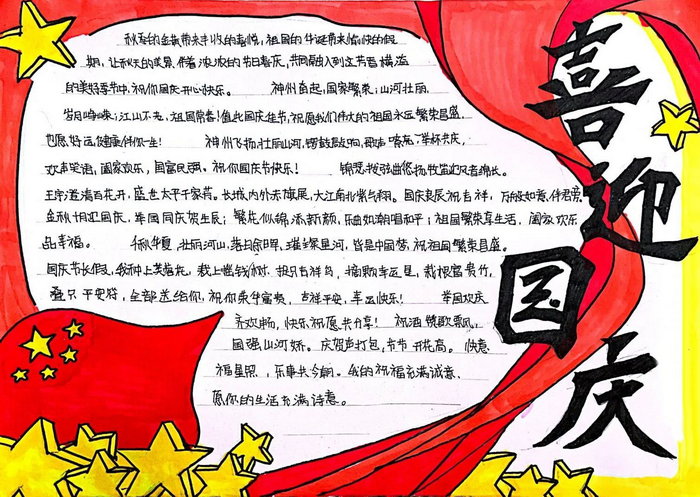 喜迎国庆
秋至的金黄带来丰收的喜悦,祖国的华诞带来愉快的假
期,让秋天的美景,伴着浓浓的节日喜庆,共同融入到这芳香横溢
的美好季节中,祝你国庆开心快乐。 神州奋起,国家繁荣;山河壮丽,
岁月峥嵘;江山不老,祖国常春!值此国庆佳节,祝愿我们伟大的祖国永远繁荣昌盛,
也愿好运,健康伴你一生! 神州飞扬,壮丽山河,锣鼓敲响,歌声嘹亮,举杯共庆,
欢声笑语,阖家欢乐,国富民强。祝你国庆节快乐! 锦瑟拨弦曲悠扬,牧笛迎风者绵长。
玉宇澄清百花开,盛世太平千家喜。长城内外赤旗展,大江南北紫气翔。国庆表辰祝吉祥,万般如意伴君旁。
金秋十月迎国庆,举国同庆贺生辰;繁花似锦添新颜,乐曲如潮唱和平;祖国繁荣享生活,阖家欢乐
品幸福。 秋华夏,壮丽河山,落日余晖,璀璨星河,皆是中国梦,祝祖国繁荣昌盛。
国庆节长假,我种上芙蓉花,栽上摇钱树,捉只吉祥鸟,摘颗幸运星,栽根富贵竹,
叠只平安符,全部送给你,祝你荣华富贵,吉祥平安,幸运快乐! 举国欢庆
齐欢畅,快乐祝愿共分享! 祝酒镜歌飘飘,
国强山河娇。庆贺声打包,节节开花高。快意
福星照,乐事共今朝。我的祝福充满诚意,
愿你的生活充满诗意。